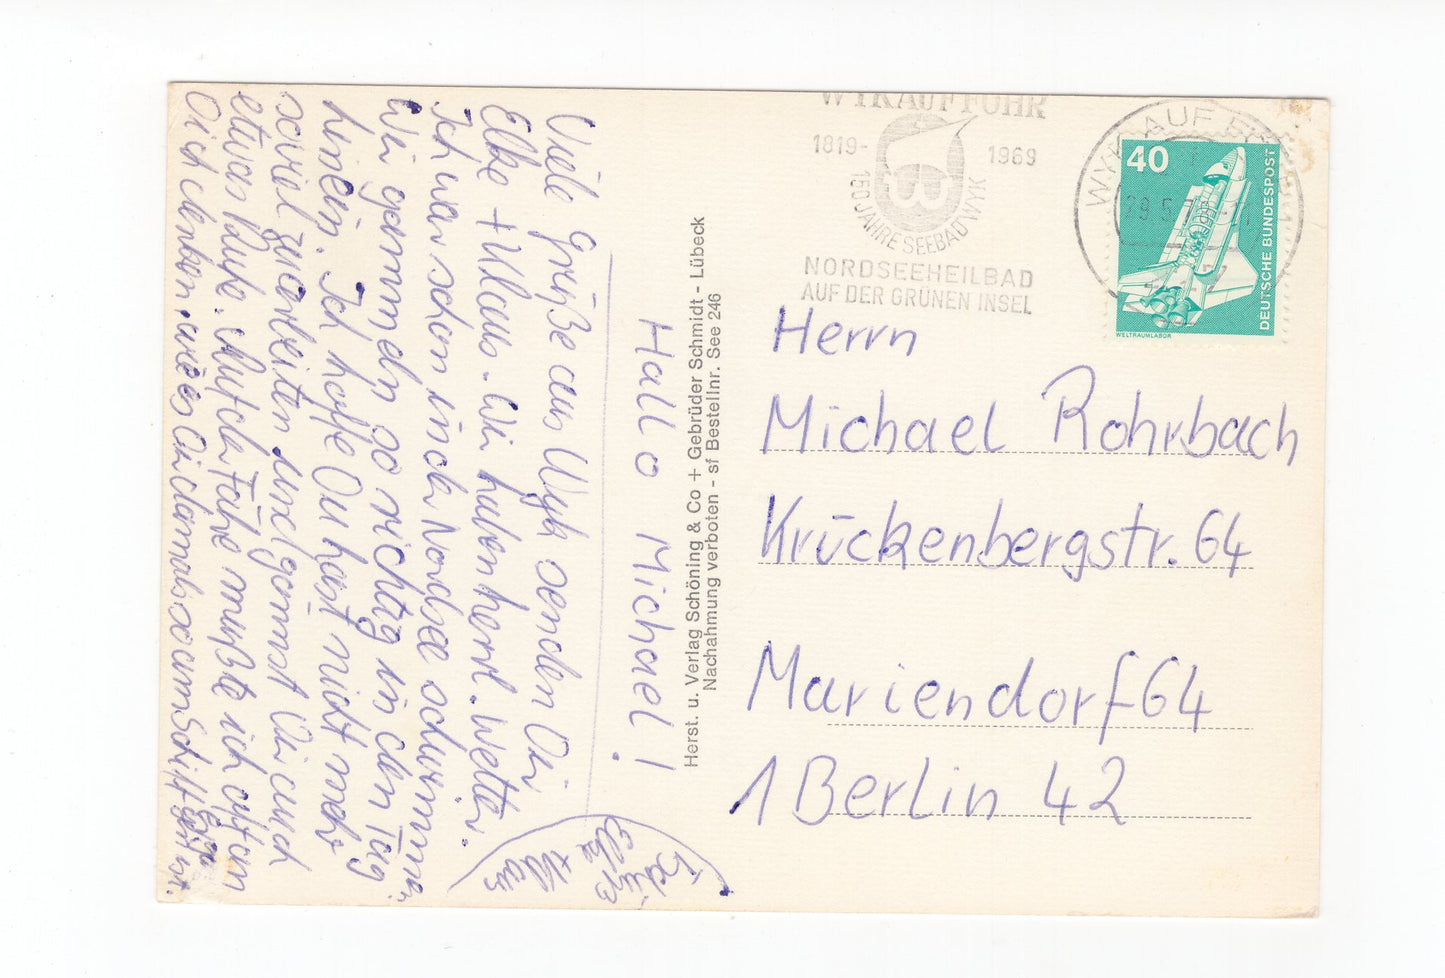 Hallo Michael!
Viele Grüße aus Wyk senden Dir
Elke + Klaus. Wir haben herrl. Wetter.
Ich war schon in der Nordsee schwimmen.
Wir gammeln so richtig in den Tag
hinein. Ich hoffe Du hast nicht mehr
soviel zu arbeiten und gönnst Dir auch
etwas Ruhe. Auf der Fähre mußte ich oft an
Dich denken, wie es Dir damals so am Schiff
Tschüß
Elke +
Klaus
Herst. u. Verlag Schöning & Co + Gebrüder Schmidt - Lübeck
Nachahmung verboten - sf Bestellnr. See 246
WYK AUF FÖHR
1819-
1969
150 JAHRE SEEBAD WYK
NORDSEEHEILBAD
AUF DER GRÜNEN INSEL
WYK AUF
40
DEUTSCHE BUNDESPOST
WELTRAUMLABOR
Herrn
Michael Rohrbach
Krückenbergstr. 64
Mariendorf 64
1 Berlin 42